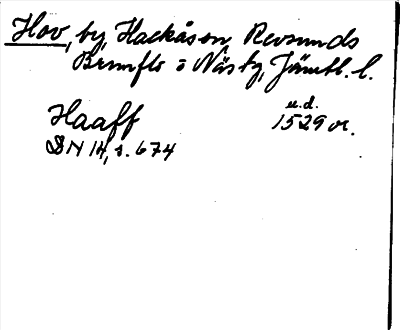 Hov, by, Hackåsen, Revsunds
Brunflo o Näs ty, Jämtl. l.
Haaff u.d. 1529 or.
DN 14, s. 674